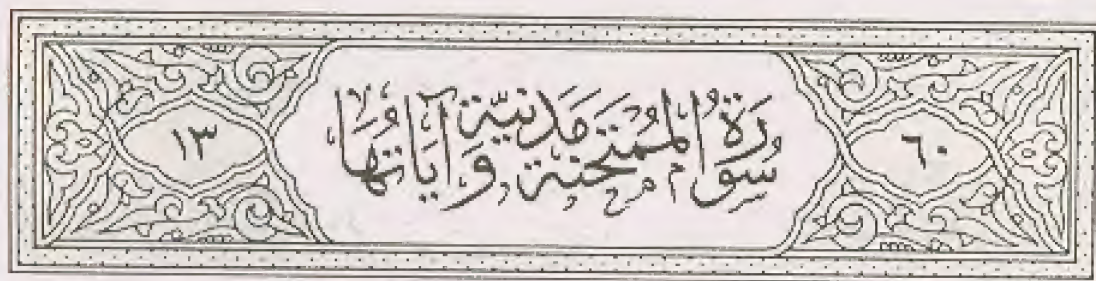 ٦٠
سُورَةُ الْمُمْتَحَنَةِ مَدَنِيَّة وَآيَاتُهَا
١٣